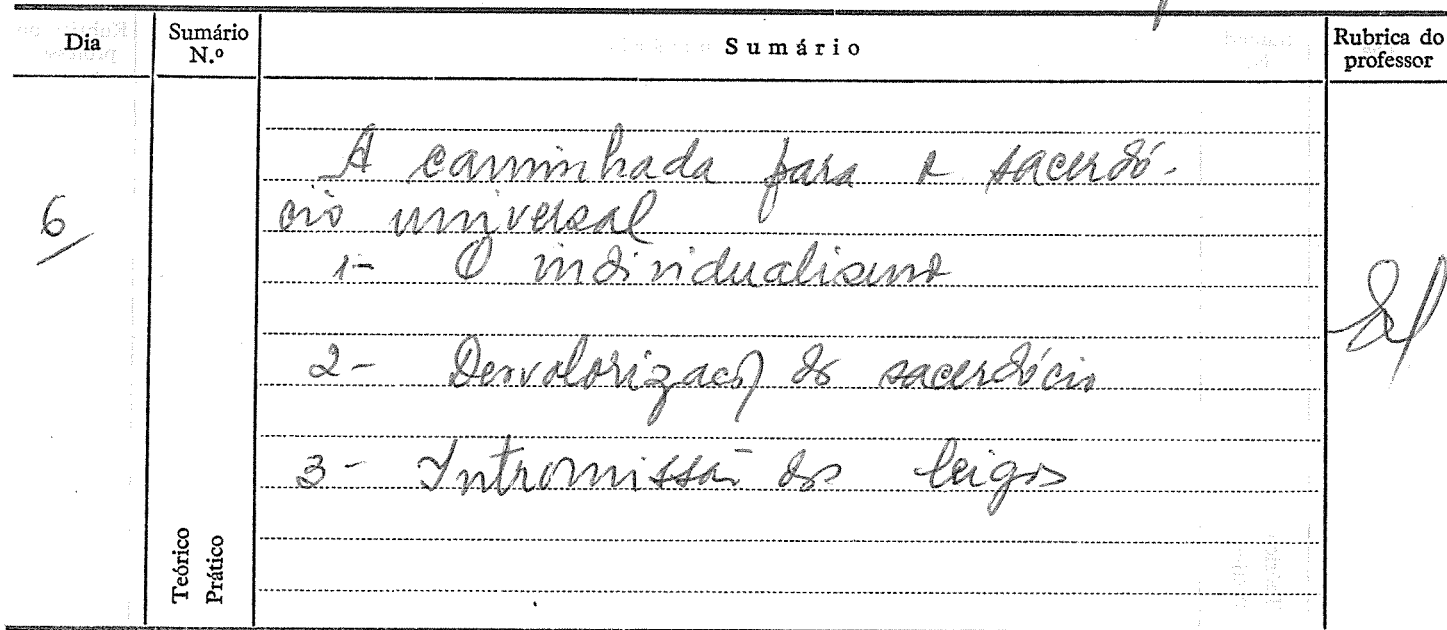 Dia
Sumário N.º
Sumário
Rubrica do professor
A caminhada para o sacerdó-
cio universal
6
1- O individualismo
2- Desvalorização do sacerdócio
3- Intromissão dos leigos
Teórico
Prático